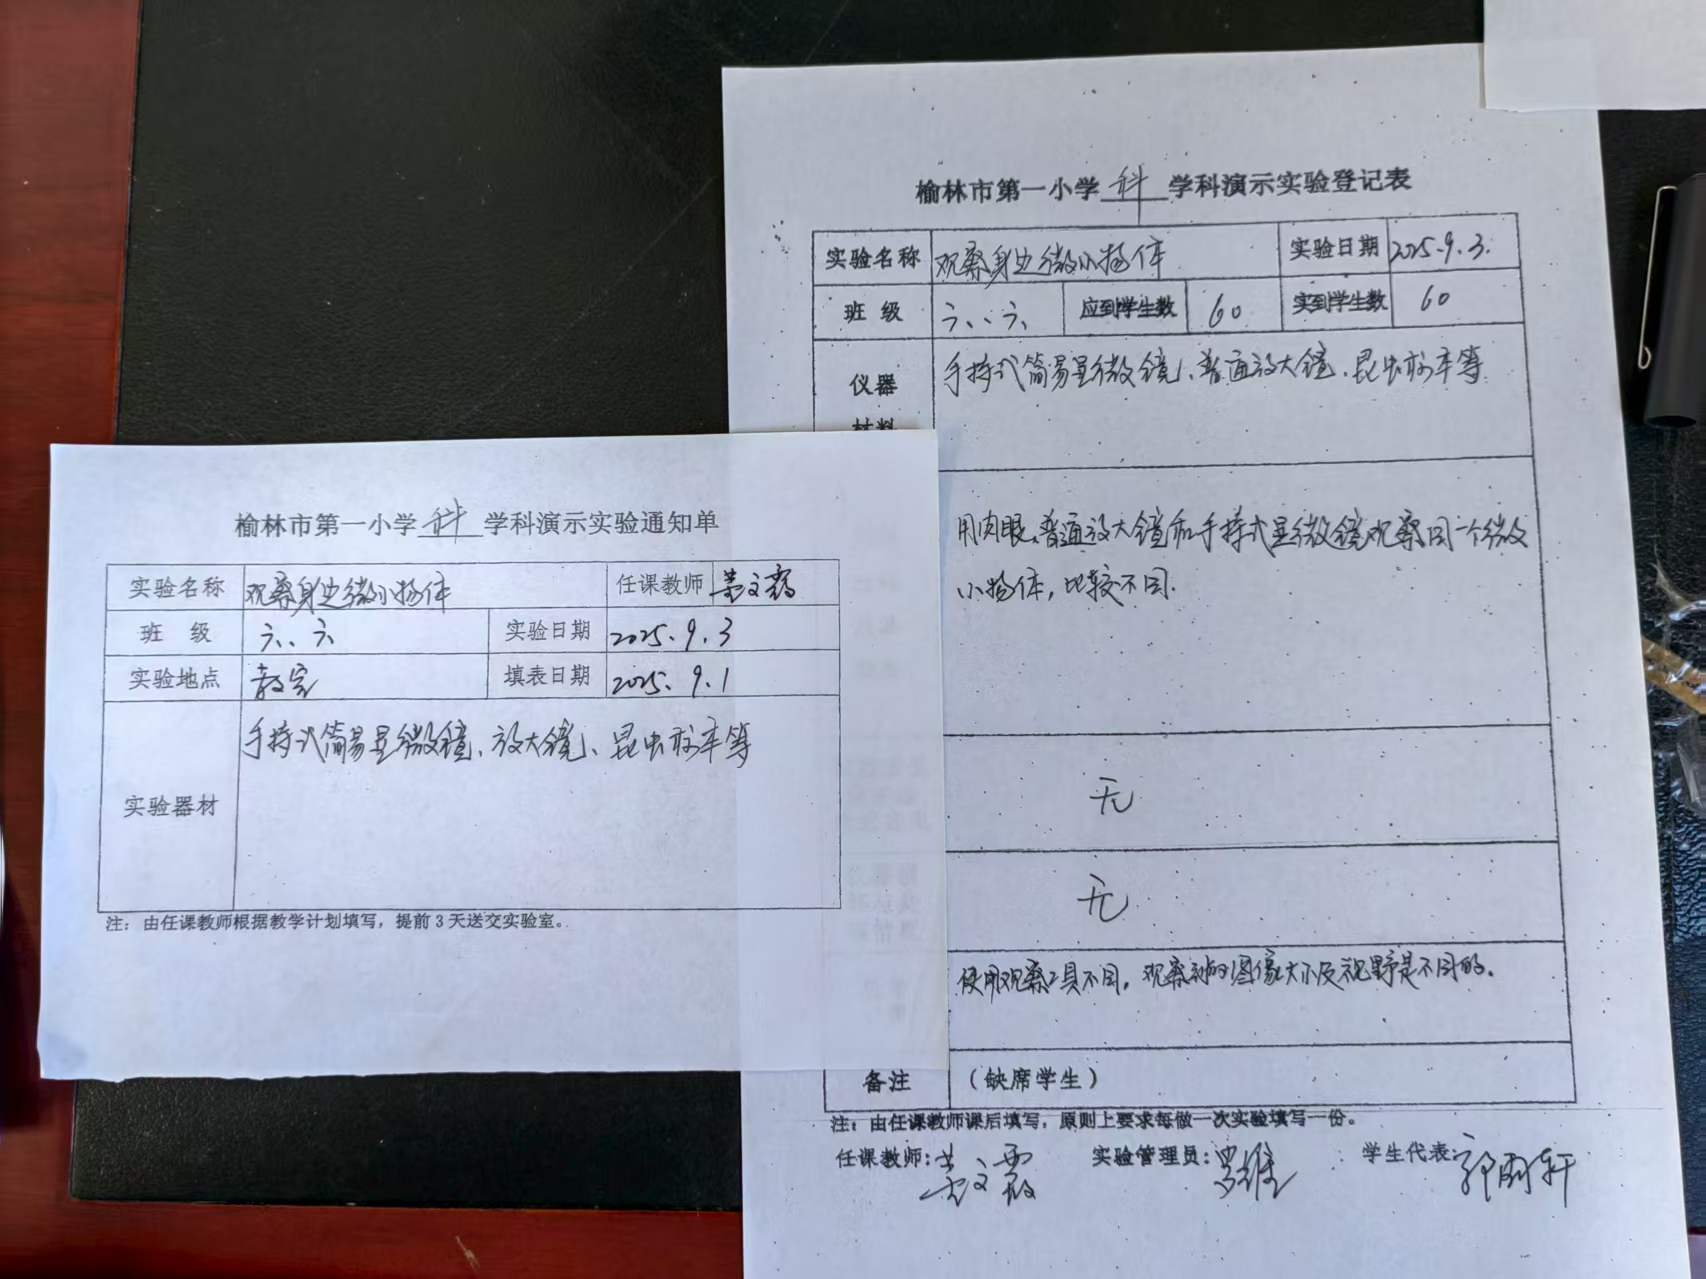 榆林市第一小学 科 学科演示实验通知单
实验名称 观察身边微小物体 任课教师
班 级 六、六 实验日期 2025.9.3
实验地点 教室 填表日期 2025.9.1
实验器材 手持式简易显微镜、放大镜、昆虫标本等
注：由任课教师根据教学计划填写，提前3天送交实验室。
榆林市第一小学 科 学科演示实验登记表
实验名称 观察身边微小物体 实验日期 2025.9.3.
班 级 六、六 应到学生数 60 实到学生数 60
仪器 手持式简易显微镜、普通放大镜、昆虫标本等
材料
用肉眼、普通放大镜和手持式显微镜观察同一个微
小物体，比较不同.
无
无
使用观察工具不同，观察到的图像大小及视野是不同的。
备注 （缺席学生）
注：由任课教师课后填写，原则上要求每做一次实验填写一份。
任课教师： 实验管理员：罗维 学生代表：郭雨轩